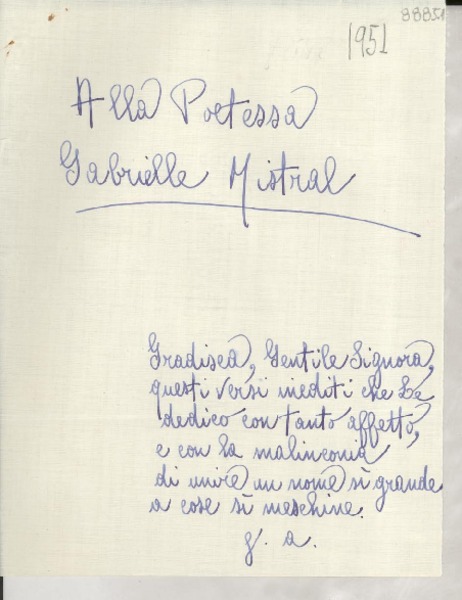 88851
1951
Alla Poetessa
Gabrielle Mistral
Gradisca, Gentile Signora,
questi versi inediti che Le
dedico con tanto affetto,
e con la malinconia
di unire un nome sì grande
a cose sì meschine.
g. a.